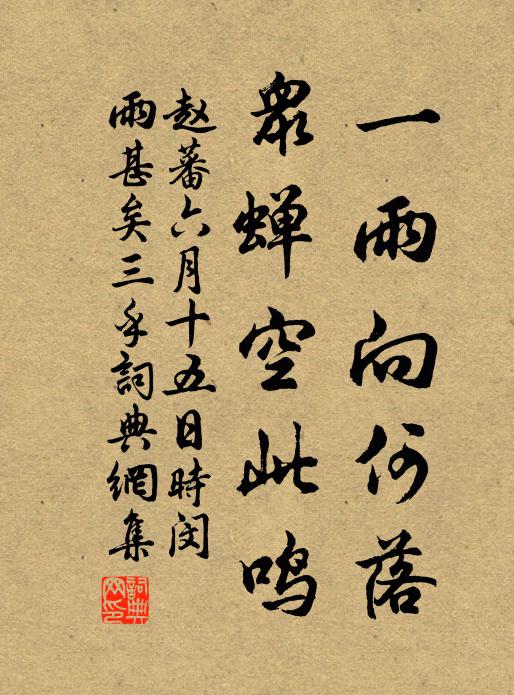 一雨向何落
眾蝉空此鸣
赵蕃六月十五日時闵
雨甚矣三手詞典網集
詞典网印